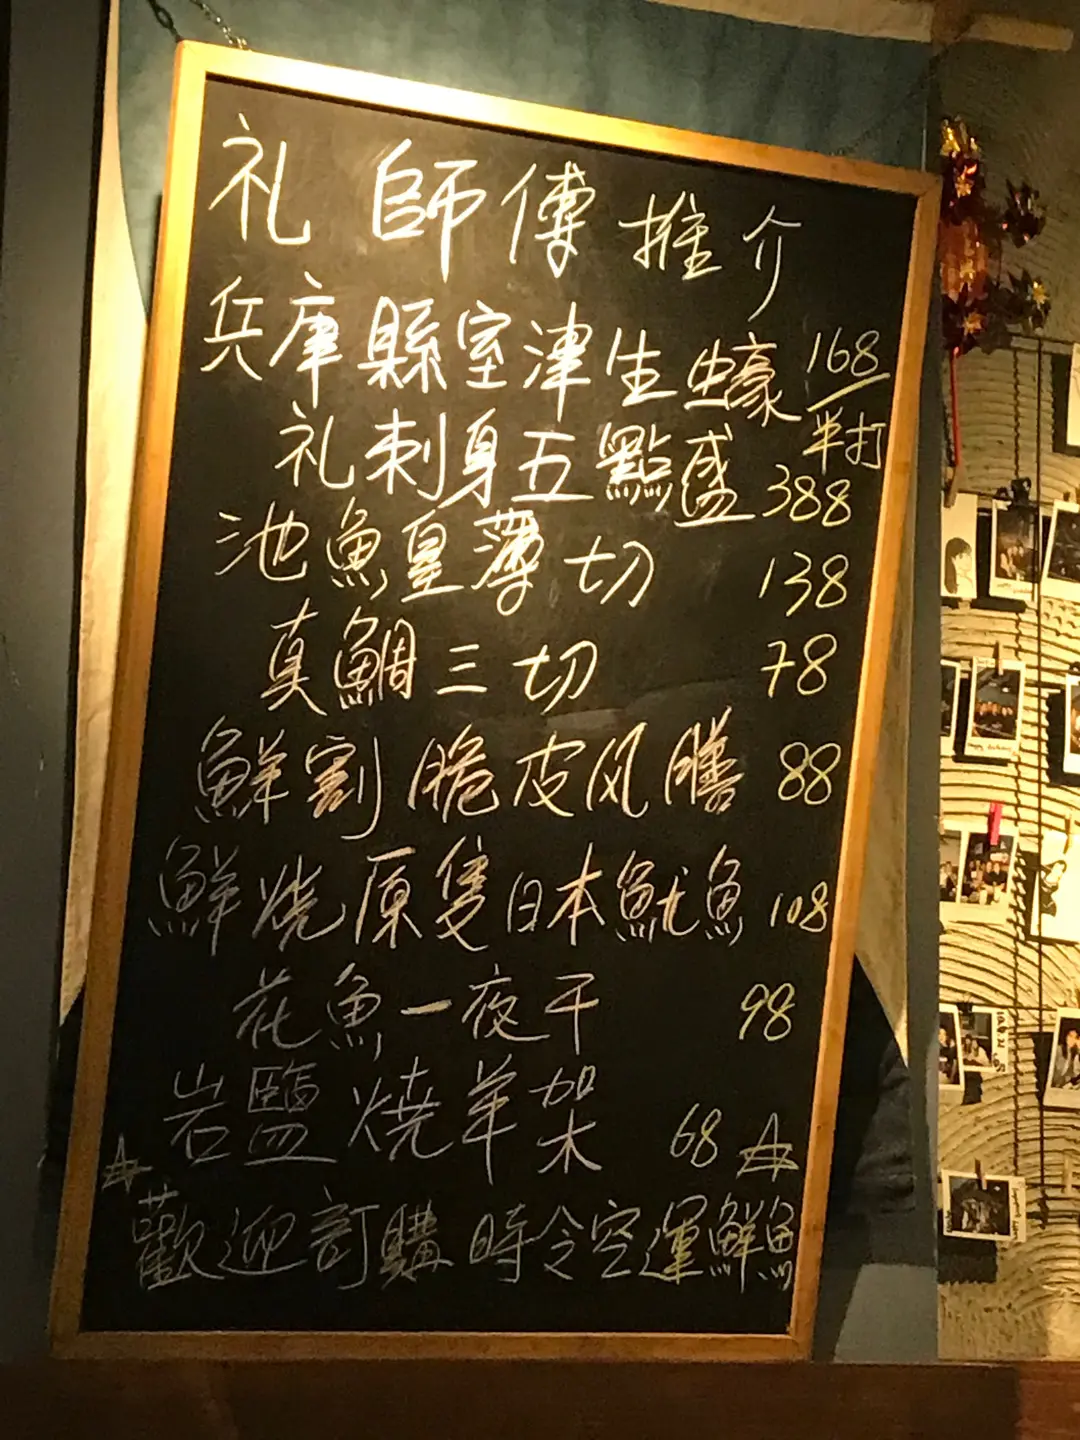 礼師傅推介
兵庫縣室津生蠔 168/半打
礼刺身五點盛 388
池魚皇薄切 138
真鯛三切 78
鮮割脆皮风膳 88
鮮燒原隻日本魷魚 108
花魚一夜干 98
岩鹽燒羊架 68
歡迎訂購時令空運鮮魚